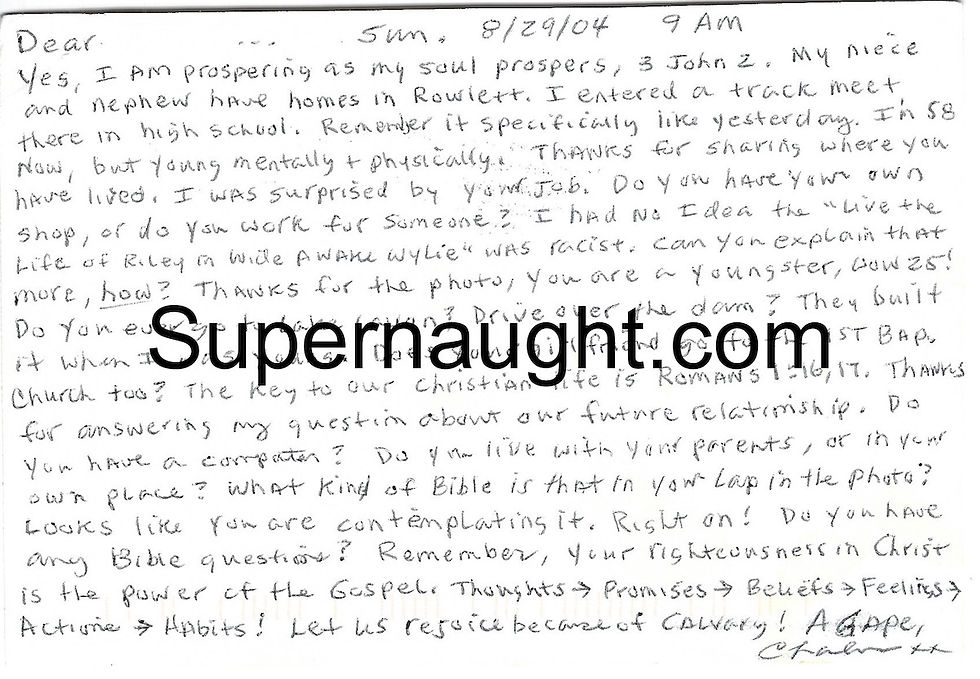 Dear ... Sun. 8/29/04 9 AM
Yes, I AM prospering as my soul prospers, 3 John 2. My niece
and nephew have homes in Rowlett. I entered a track meet
there in high school. Remember it specifically like yesterday. I'm 58
now, but young mentally + physically. THANKS for sharing where you
have lived. I was surprised by your job. Do you have your own
shop, or do you work for someone? I had no Idea the "Live the
Life of Riley in Wide AWAKE Wylie" WAS racist. Can you explain that
more, how? THANKS for the photo, you are a youngster, wow 25!
Do you ever go to Lake Lavon? Drive over the dam? They built
it when I was Does your girlfriend go to the 1ST BAP.
Church too? The key to our Christian life is ROMANS 1:16,17. THANKS
for answering my question about our future relationship. Do
you have a computer? Do you live with your parents, or in your
own place? What kind of Bible is that in your Lap in the photo?
Looks like you are contemplating it. Right on! Do you have
any Bible questions? Remember, your righteousness in Christ
is the power of the Gospel. Thoughts → Promises → Beliefs → Feelings →
Actions → Habits! Let us rejoice because of CALVARY! AGAPE,
Supernaught.com